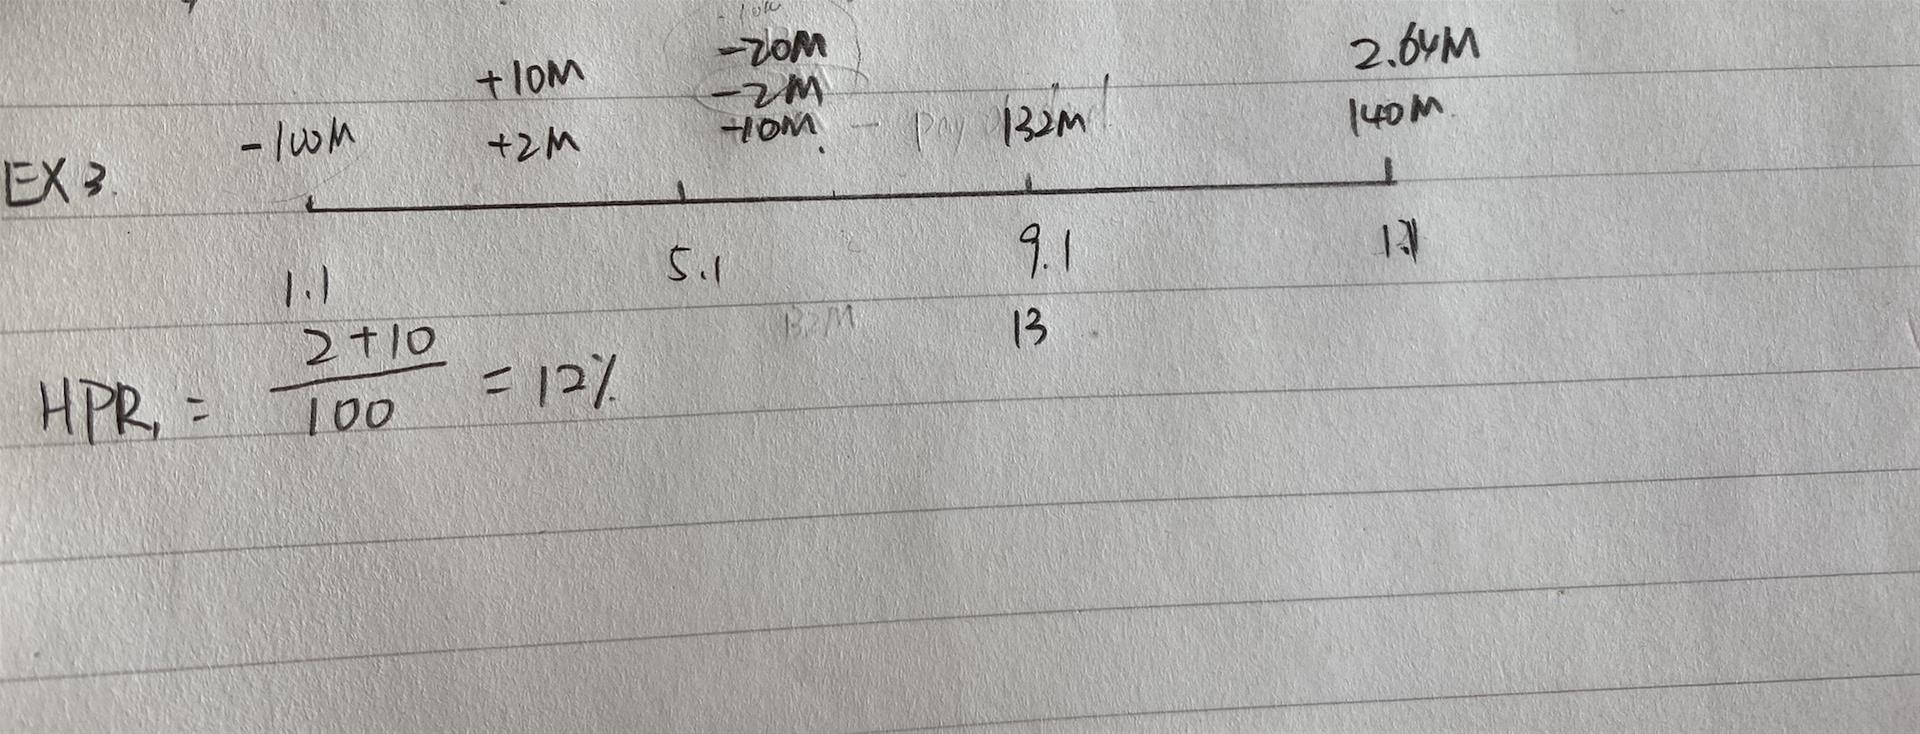 -20M
2.64M
+10M
-2M
-100M
+2M
-10M
132M
140M
EX 3.
1.1
5.1
9.1
2+10
13
HPR₁ = = 12%
100